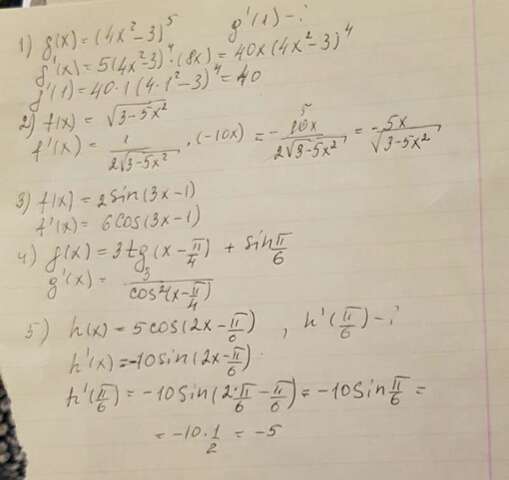 1) g(x) = (4x² - 3)⁵ g'(1) - ?
g'(x) = 5(4x² - 3)⁴ · (8x) = 40x(4x² - 3)⁴
g'(1) = 40 · 1(4 · 1² - 3)⁴ = 40
2) f(x) = √(3 - 5x²)
f'(x) = 1/(2√(3 - 5x²)) · (-10x) = - 10x/(2√(3 - 5x²)) = - 5x/√(3 - 5x²)
3) f(x) = 2 sin(3x - 1)
f'(x) = 6 cos(3x - 1)
4) g(x) = 3 tg(x - π/4) + sin π/6
g'(x) = 3/cos²(x - π/4)
5) h(x) = 5 cos(2x - π/6), h'(π/6) - ?
h'(x) = -10 sin(2x - π/6)
h'(π/6) = -10 sin(2 · π/6 - π/6) = -10 sin π/6 =
= -10 · 1/2 = -5